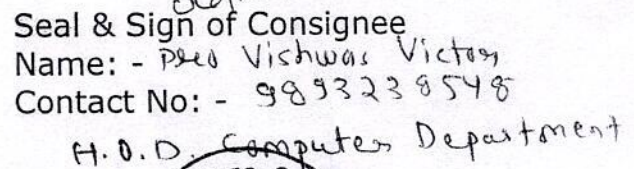 Seal & Sign of Consignee
Name: - Vishwas Victor
Contact No: - 9893238548
H.O.D. Computer Department